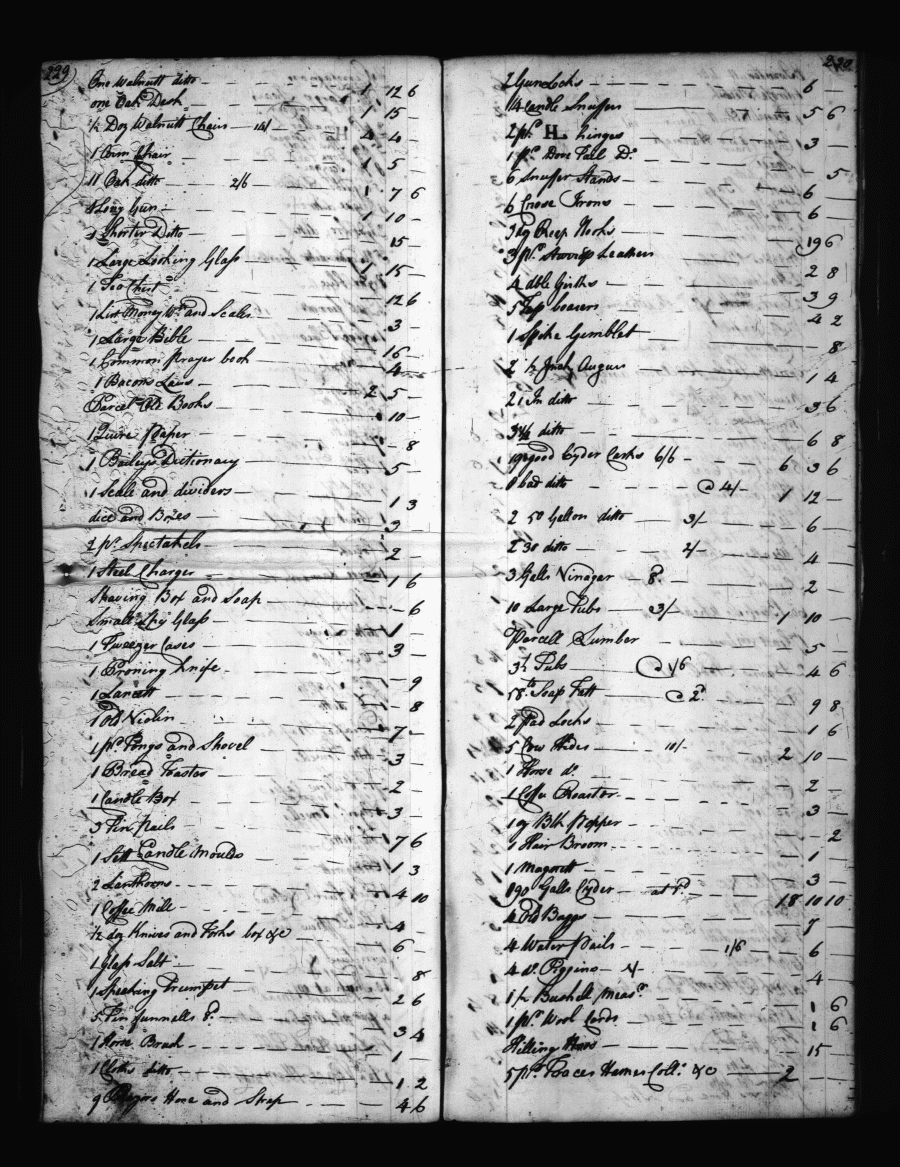 229
One Walnutt ditto 1 12 6
one Oak Desk 1 15
½ Doz Walnutt Chairs 14/ 4 4
1 Arm Chair 1 5
11 Oak ditto 2/6 1 7 6
1 Long Gun 1 10
1 Shorter Ditto 15
1 Large Looking Glass 1 15
1 Tea Chest 12 6
1 Money Wts and Scales 3
1 Large Bible 16
1 Common prayer book 4
1 Bacons Laws 2 5
Parcel Old Books 10
1 Quire paper 8
1 Baileys Dictionary 5
1 Scale and dividers 1 3
dice and Boxes 3
2 pr. Spectakels 2
1 Steel Charger 1 6
Shaving Box and Soap 6
Small Spy Glass 1
1 Tweezer Cases 3
1 Proning Knife 9
1 Lancett 8
1 Old Violin 7
1 pr. Tongs and Shovel 3
1 Bread Toaster 2
1 Candle Box 3
3 Tin Pails 7 6
1 Sett Candle Moulds 1 3
2 Lanthorns 4 10
1 Coffee Mill 4
½ doz Knives and Forks box &c 6
1 Glass Salt 8
1 Speaking Trumpet 2 6
5 Tin funnells 8. 3 4
1 Horse Brush 1
1 Cloths ditto 1 2
9 Razors Hone and Strap 4 6
230
2 Gun Locks 6
14 Candle Snuffers 5 6
2 pr. H. hinges 3
1 pr. Dove Tail Do. 5
6 Snuffer Stands 6
6 Goose Irons 6
39 Reep Hooks 19 6
3 pr. Stirrup Leathers 2 8
4 dble Girths 3 9
5 Tap borers 4 2
1 Spike Gimblet 8
2 ½ Inch Augurs 1 4
2 1 In ditto 3 6
3 1½ ditto 6 8
19 good Cyder Casks 6/6 6 3 6
8 bad ditto @ 4/ 1 12
2 50 Gallon ditto 3/ 6
2 30 ditto 2/ 4
3 Galls Vinagar 8. 2
10 Large Tubs 3/ 1 10
Parcell Lumber 5
3 ½ Tubs @ 1/6 4 6
58 lb Soap Fatt @ 2d. 9 8
2 Pad Locks 1 6
5 Cow Hides 10/ 2 10
1 Horse do. 2
1 Coffee Roaster 3
1 Blk Pepper 2
1 Hair Broom 1
1 3
890 Galls Cyder at 18 10 10
4 Old Baggs 7
4 Water Pails 1/6 6
4 do. Piggins 1/ 4
1 ½ Bushell Measr. 1 6
1 pr. Wool Cards 1 6
Hilling Hoes 15
5 pr. Traces Hames Coll. &c 2